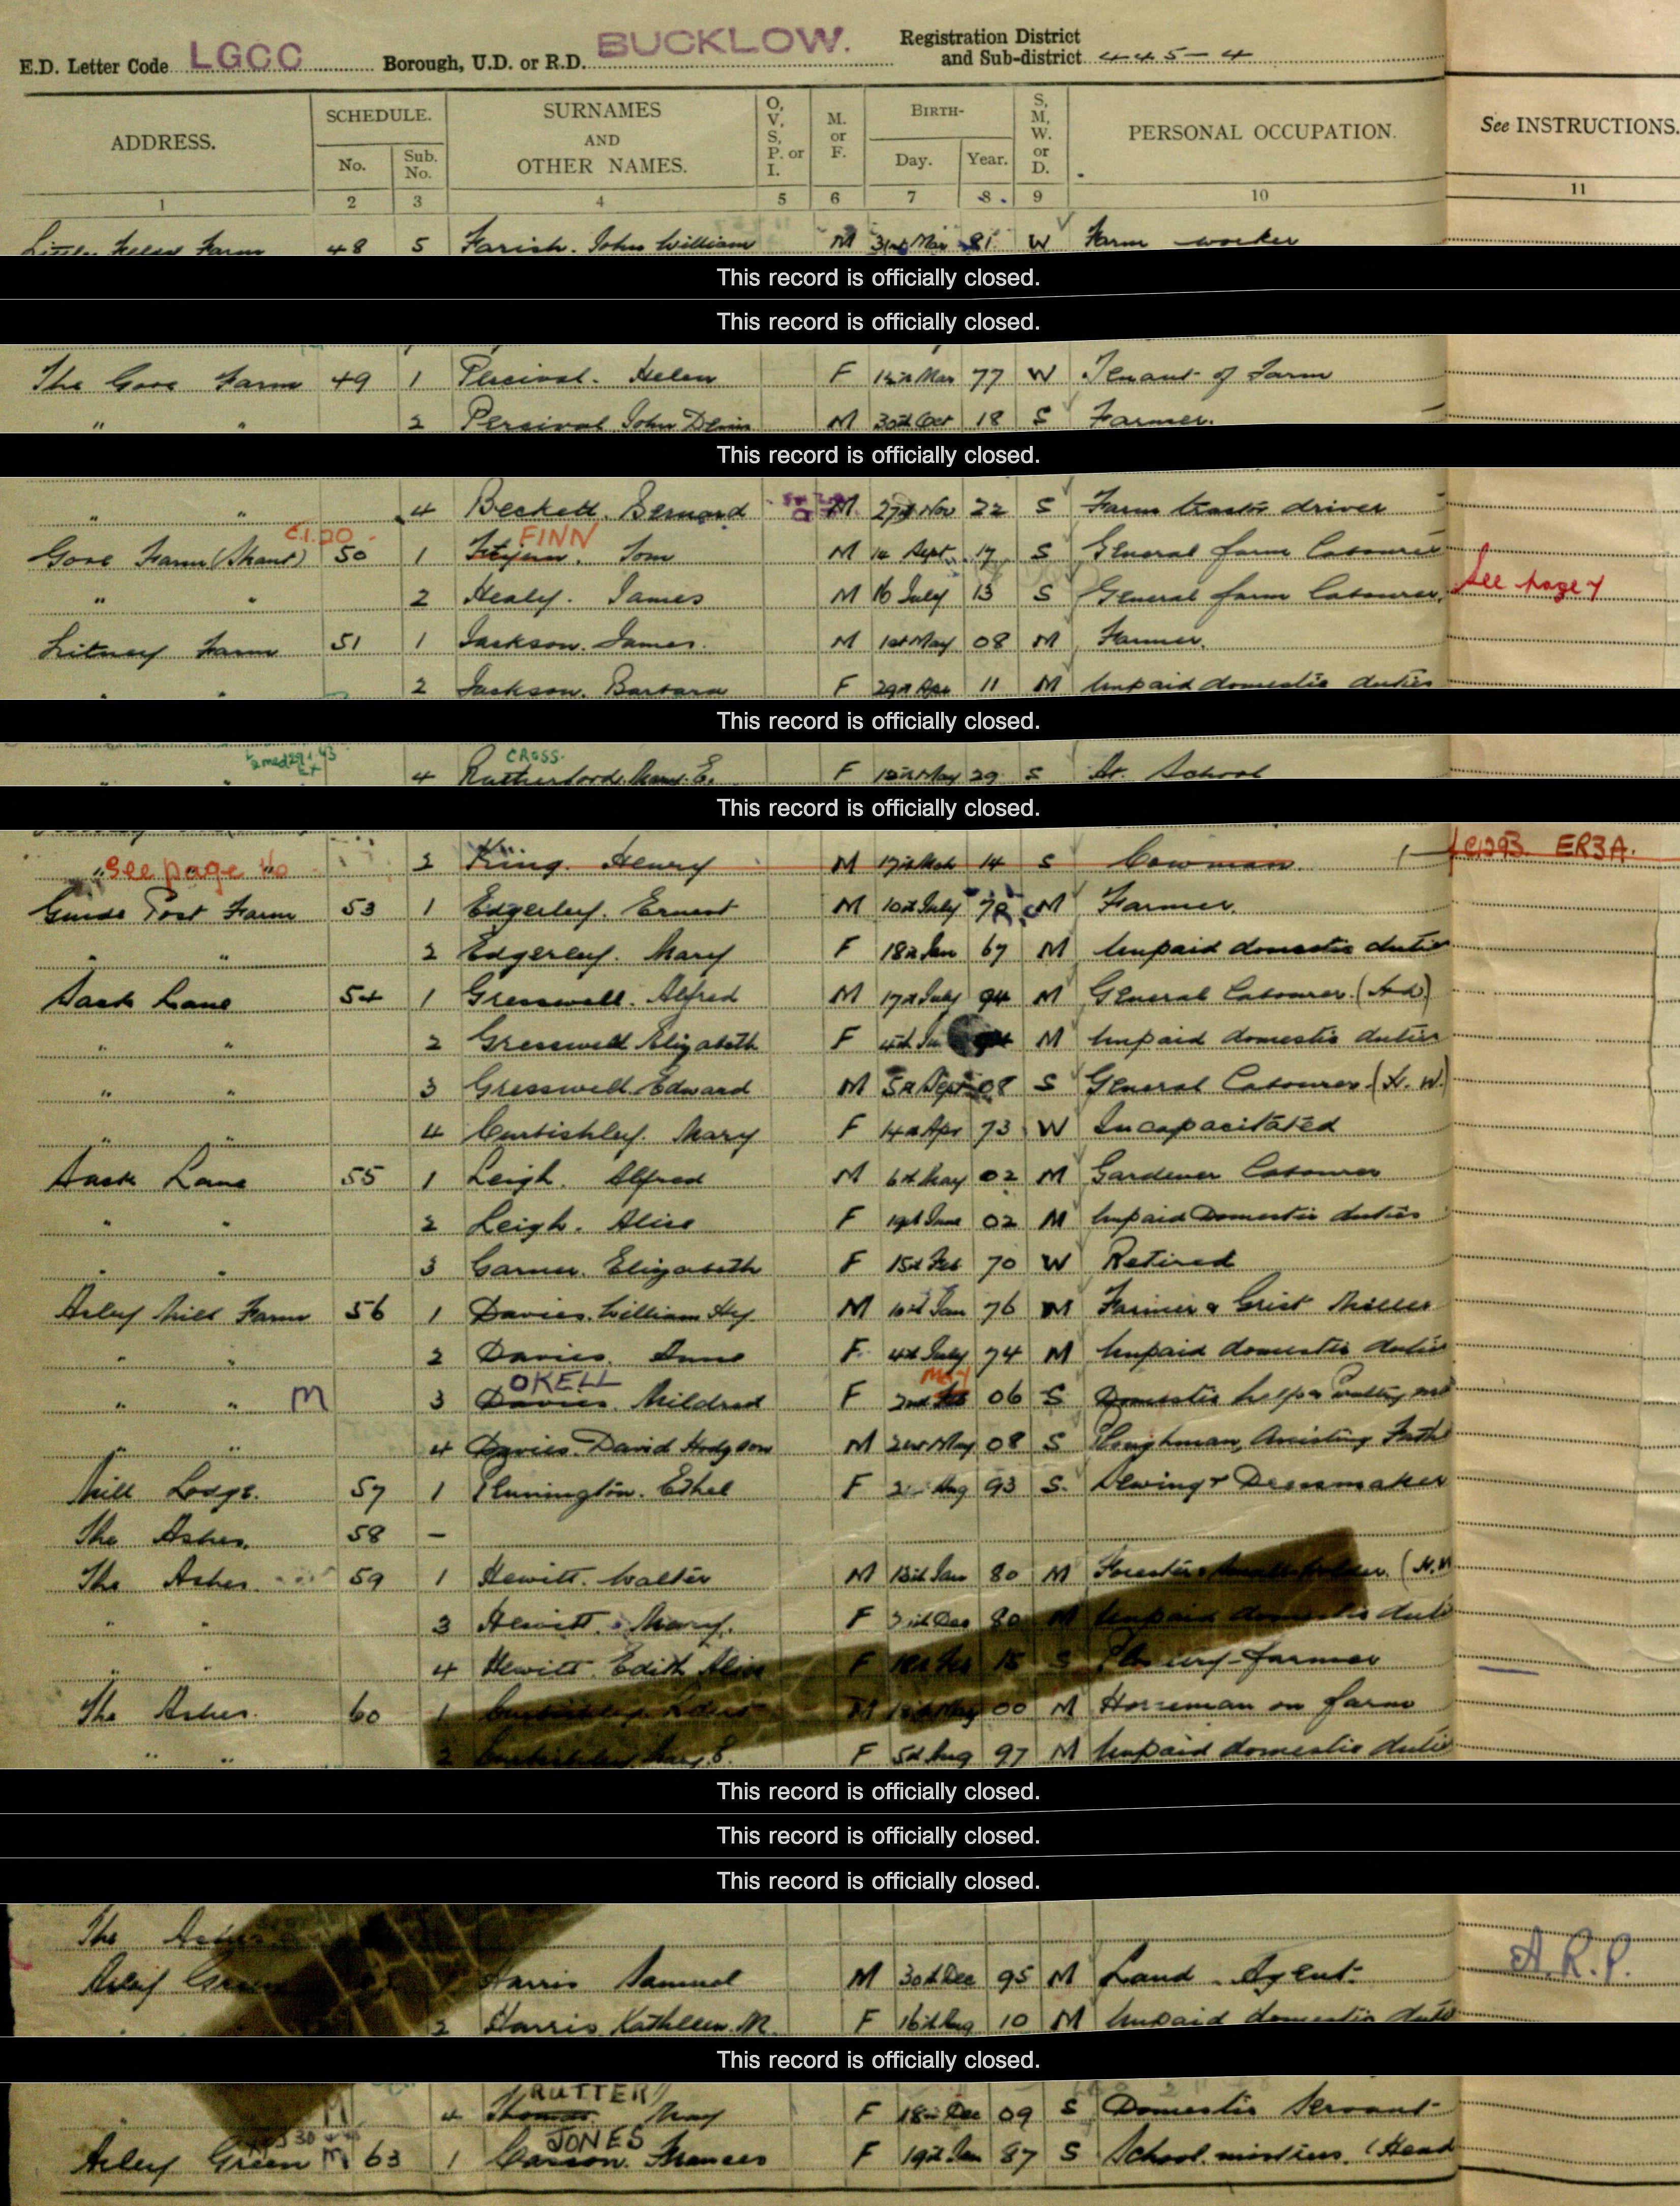 E.D. Letter Code LGCC Borough, U.D. or R.D. BUCKLOW. Registration District and Sub-district 445-4
ADDRESS. SCHEDULE. No. Sub. No. SURNAMES AND OTHER NAMES. O, V, S, P. or I. M. or F. BIRTH- Day. Year. S, M, W. or D. PERSONAL OCCUPATION. See INSTRUCTIONS.
1 2 3 4 5 6 7 8. 9 10 11
Farm 48 5 Farish. John William M 31st Mar 81 W Farm worker
This record is officially closed.
This record is officially closed.
The Gore Farm 49 1 Percival. Helen F Mar 77 W Tenant of Farm
" " 2 Percival John M 30th Oct 18 S Farmer.
This record is officially closed.
" " 4 Beckett. Bernard M 27th Nov 22 S Farm tractor driver
C.I.20. FINN
Gore Farm (Shant) 50 1 Tom M 14 Sept. 17 S General farm labourer
" " 2 Healy. James M 16 July 13 S General farm labourer. See page 7
Litney Farm 51 1 Jackson. James. M 1st May 08 M Farmer.
" " 2 Jackson. Barbara F 29th Apr 11 M Unpaid domestic duties
This record is officially closed.
CROSS.
4 Rutherford. Mary. E. F May 29 S At School
This record is officially closed.
" See page 16 King. Henry M 17th 14 S Cowman. ER3A.
Guide Post Farm 53 1 Edgerley. Ernest M 10th July 78 M Farmer.
" " 2 Edgerley. Mary F 18th Jan 67 M Unpaid domestic duties
Sack Lane 54 1 Gresswell. Alfred M 17th July 94 M General Labourer
" " 2 Gresswell Elizabeth F 4th M Unpaid domestic duties
" " 3 Gresswell. Edward M 5th Sept 08 S General Labourer (H.W.)
" " 4 Curbishley. Mary F 14th Apr 73 W Incapacitated
Sack Lane 55 1 Leigh. Alfred M 6th May 02 M Gardener Labourer
" " 2 Leigh. Alice F 19th June 02 M Unpaid Domestic duties
" " 3 Garner. Elizabeth F 15th Feb 70 W Retired
Arley Mill Farm 56 1 Davies. William Hy M 10th Jan 76 M Farmer & Grist Miller
" " 2 Davies. Anne F 4th July 74 M Unpaid domestic duties
OKELL May
" " M 3 Davies. Mildred F 2nd 06 S Domestic help &
" " 4 Davies. David Hodgson M 2nd May 08 S Ploughman, Assisting Fath
Mill Lodge. 57 1 Pennington. Ethel F 2 Aug 93 S. Sewing & Dressmaker
The Ashes. 58 -
The Ashes 59 1 Hewitt. Walter M 13th Jan 80 M Forester & Small-holder. (H.W
" " 3 Hewitt. Mary. F Dec 80 M Unpaid domestic duti
" " 4 Hewitt. Edith Alice F Feb 15 S farmer
The Ashes. 60 1 Curbishley. M May 00 M Horseman on farm
" " 2 Curbishley Mary E. F 5th Aug 97 M Unpaid domestic dutie
This record is officially closed.
This record is officially closed.
This record is officially closed.
The Ashes
Arley Green Harris Samuel M 30th Dec 95 M Land Agent. A.R.P.
2 Harris Kathleen. M. F 16th Aug 10 M Unpaid domestic duti
This record is officially closed.
RUTTER
M 4 Thomas May F 18th Dec 09 S Domestic Servant
JONES
Arley Green M 63 1 Carson. Frances F 19th Jan 87 S School mistress. (Head